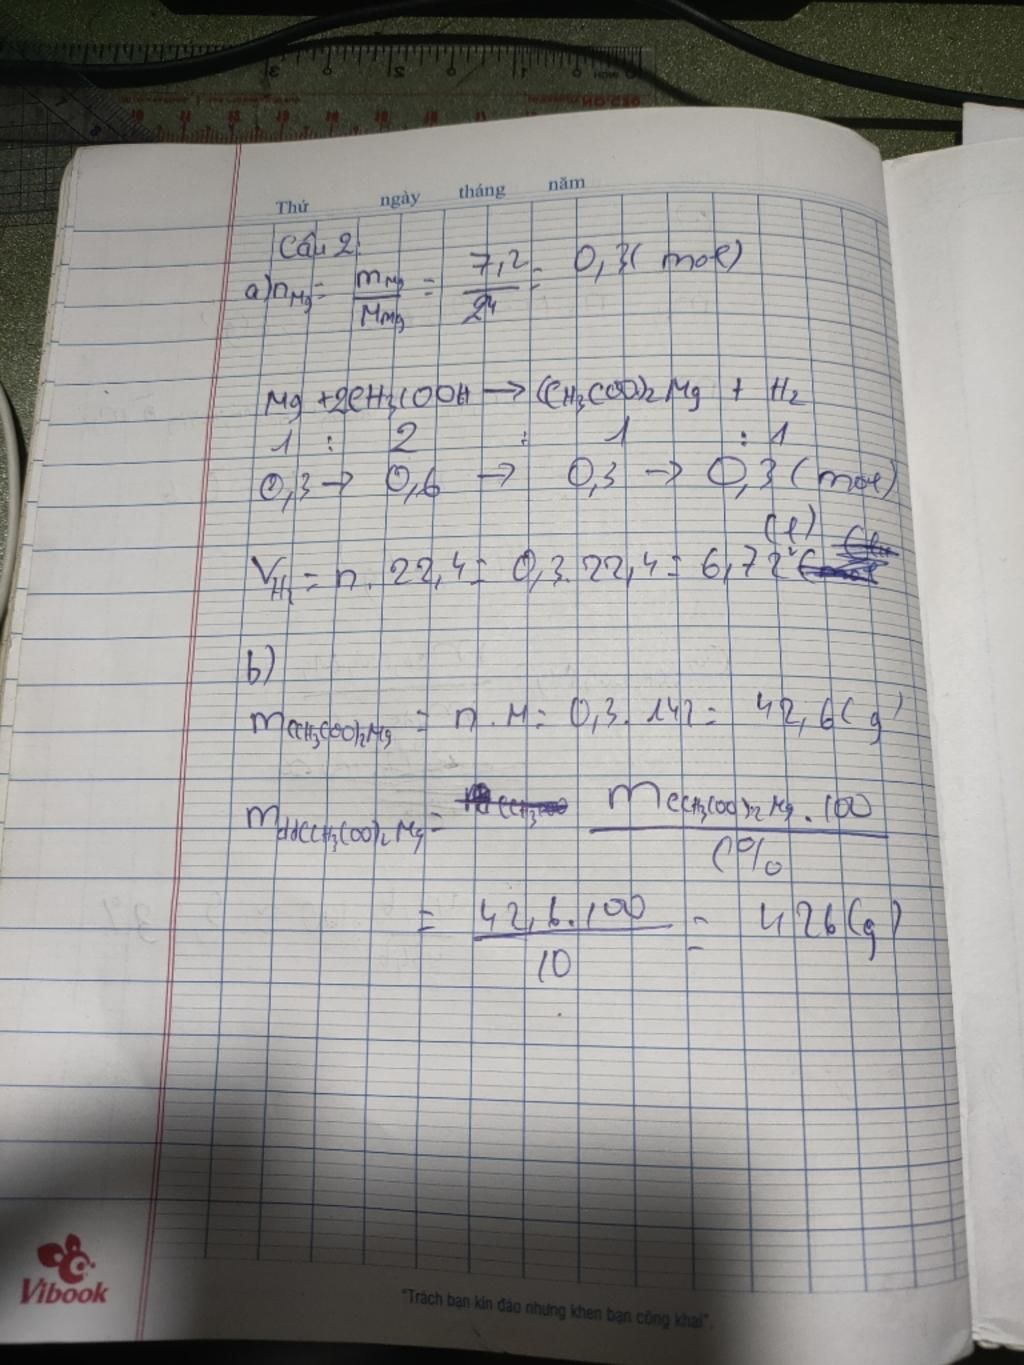 Thứ ngày tháng năm
Câu 2
a) nMg = mMg / MMg = 7,2 / 24 = 0,3 (mol)
Mg + 2CH3COOH → (CH3COO)2Mg + H2
1 : 2 : 1 : 1
0,3 → 0,6 → 0,3 → 0,3 (mol)
VH2 = n. 22,4 = 0,3. 22,4 = 6,72 (l)
b)
m(CH3COO)2Mg = n. M = 0,3. 142 = 42,6 (g)
mdd(CH3COO)2Mg = m(CH3COO)2Mg . 100 / C%
= 42,6.100 / 10 = 426 (g)
Vibook
"Trách bạn kín đáo nhưng khen bạn công khai".